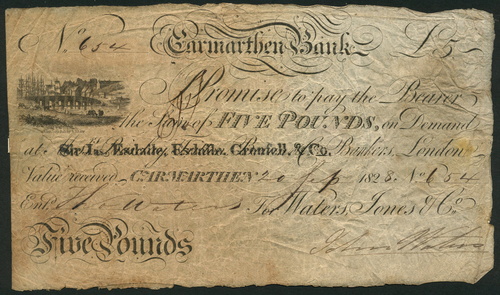 No. 654 Carmarthen Bank £5
I Promise to pay the Bearer
the Sum of FIVE POUNDS, on Demand
at Bankers, London
Value received CARMARTHEN 20 1828 No. 654
Entd. For Waters, Jones & Co.
Five Pounds John Waters